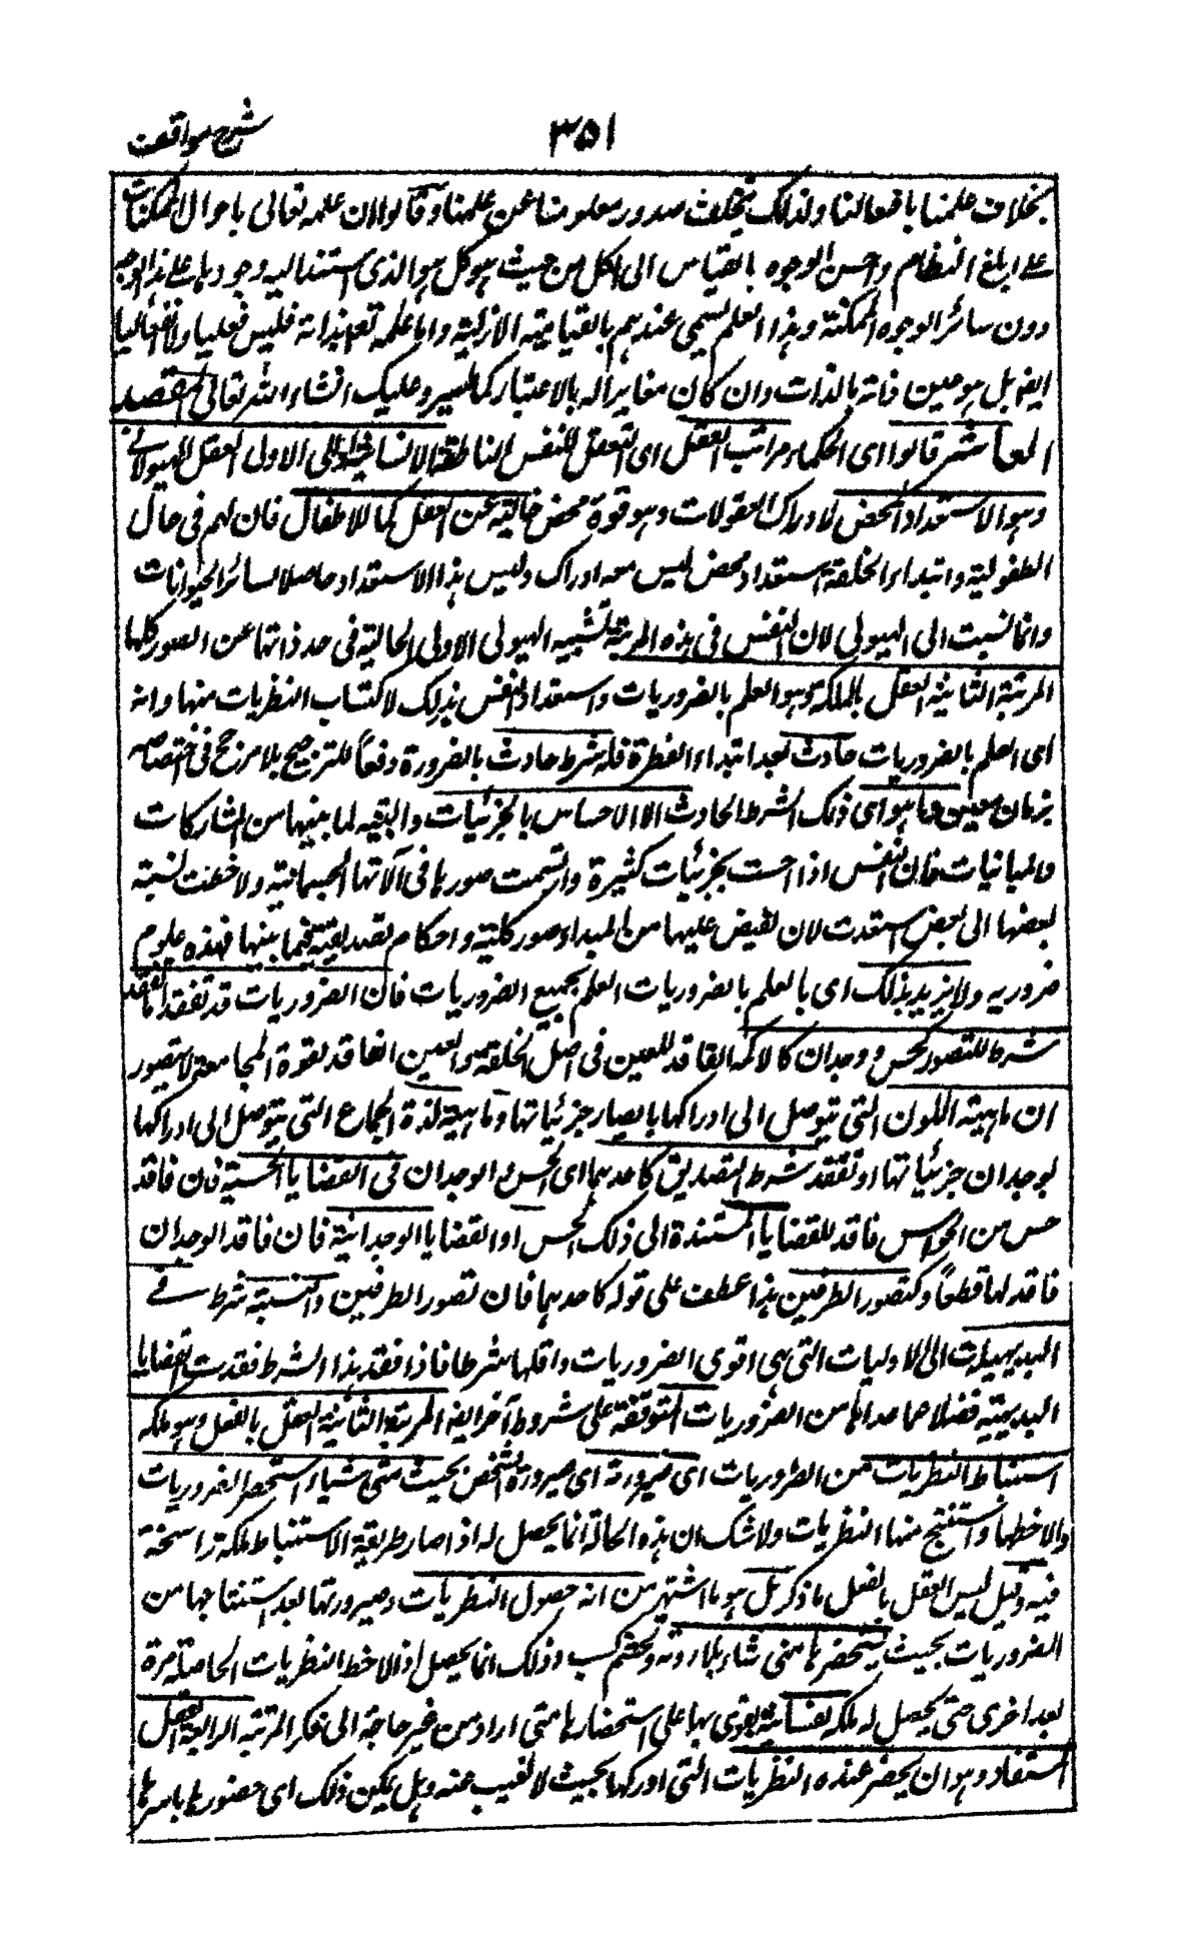 شرح مواقف
٣٥١
بخلاف علمنا بافعالنا ولذلك تخلف صدور معلومنا عن علمنا وقالوا لان علمه تعالى باحوال الممكنات
على ابلغ النظام واحسن الوجوه بالقياس الى الكل من حيث هو كل هو الذى استند اليه وجودها على هذا الوجه
دون سائر الوجوه الممكنة وهذا العلم يسمى عندهم بالعناية الازلية واما علمه تعم بذاته فليس فعليا ولا انفعاليا
ايضا بل هو عين ذاته بالذات وان كان مغايرا له بالاعتبار كما سيرد عليك انشاء الله تعالى المقصد
العاشر قالوا اى الحكماء مراتب العقل اى التعقل للنفس الناطقة الانسانية اربع الاولى العقل الهيولانى
وهو الاستعداد المحض لادراك المعقولات وهو قوة محض خالية عن العقل كما للاطفال فان لهم فى حال
الطفولية وابتداء الخلقة استعداد محض ليس معه ادراك وليس هذا الاستعداد حاصلا لسائر الحيوانات
وانما نسبت الى الهيولى لان النفس فى هذه المرتبة تشبيه الهيولى الاولى الخالية فى حد ذاتها عن الصور كلها
المرتبة الثانية العقل بالملكة وهو العلم بالضروريات واستعداد النفس بذلك لاكتساب النظريات منها وانه
اى العلم بالضروريات حادث بعد ابتداء الفطرة فله شرط حادث بالضرورة دفعاً للترجيح بلا مرجح فى اختصاصه
بزمان معين وما هو اى ذلك الشرط الحادث الا الاحساس بالجزئيات والتنبه لما بينها من المشاركات
والمباينات فان النفس اذا احست بجزئيات كثيرة وارتسمت صورها فى آلاتها الجسمانية ولاحظت نسبة
بعضها الى بعض استعدت لان تفيض عليها من المبداء صور كلية واحكام تصديقية فيما بينها فهذه علوم
ضروريه ولا نريد بذلك اى بالعلم بالضروريات العلم بجميع الضروريات فان الضروريات قد تفقد اما لفقد
شرط للتصور كحس ووجدان كالاكمه الفاقد للعين فى اصل الخلقة والعنين الفاقد لقوة المجامعة لا يتصور
ان ماهية اللون التى يتوصل الى ادراكها بابصار جزئياتها وماهية لذة الجماع التى يتوصل الى ادراكها
بوجدان جزئياتها او تفقد شرط التصديق كاحدهما اى الحس والوجدان فى القضايا الحسية فان فاقد
حس من الحواس فاقد للقضايا المستندة الى ذلك الحس او القضايا الوجدانية فان فاقد الوجدان
فاقد لها قطعاً وكتصور الطرفين هذا عطف على قوله كاحدهما فان تصور الطرفين والنسبة شرط فى
البديهيات اى الاوليات التى هى اقوى الضروريات واقلها شرطا فاذا فقد هذا الشرط فقدت القضايا
البديهية فضلا عما عداها من الضروريات المتوقفة على شروط آخر ايضا المرتبة الثالثة العقل بالفعل وهو ملكه
استنباط النظريات من الضروريات اى صيرورته اى صيرورة الشخص بحيث متى شاء استحضر الضروريات
ولاحظها واستنتج منها النظريات ولا شك ان هذه الحالة انما يحصل له اذا صار طريقة الاستنباط ملكة راسخة
فيه وقيل ليس العقل بالفعل ما ذكر بل هو ما اشتهر من انه حصول النظريات وصيرورتها بعد استنتاجها من
الضروريات بحيث يستحضرها متى شاء بلا روية وتجشم كسب وذلك انما يحصل اذا لاحظ النظريات الحاصلة مرة
بعد اخرى حتى يحصل له ملكة نفسانية يقوى بها على استحضارها متى اراد من غير حاجة الى فكر المرتبة الرابعة العقل
المستفاد وهو ان يحضر عنده النظريات التى ادركها بحيث لا تغيب عنه وهل يمكن ذلك اى حضورها باسرها